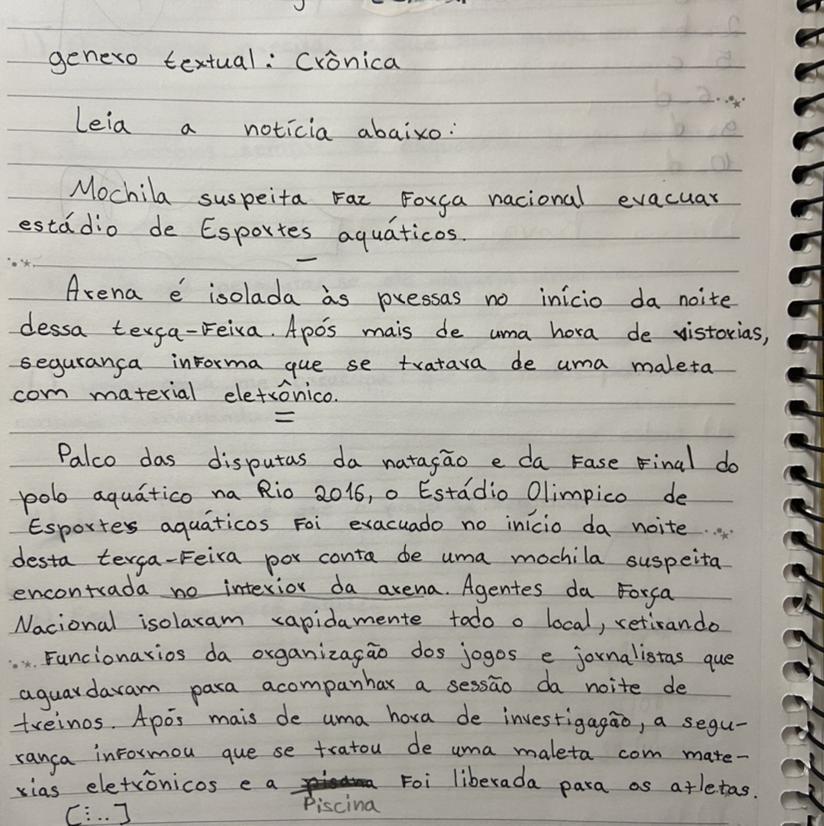 genero textual: Crônica
Leia a notícia abaixo:
Mochila suspeita Faz Força nacional evacuar
estádio de Esportes aquáticos.
Arena é isolada às pressas no início da noite
dessa terça-Feira. Após mais de uma hora de vistorias,
segurança informa que se tratara de uma maleta
com material eletrônico.
Palco das disputas da natação e da Fase Final do
polo aquático na Rio 2016, o Estádio Olimpico de
Esportes aquáticos Foi evacuado no início da noite
desta terça-Feira por conta de uma mochila suspeita
encontrada no interior da arena. Agentes da Força
Nacional isolaram rapidamente todo o local, retirando
Funcionarios da organização dos jogos e jornalistas que
aguardavam para acompanhar a sessão da noite de
treinos. Após mais de uma hora de investigação, a segu-
rança informou que se tratou de uma maleta com mate-
rias eletrônicos e a Piscina Foi liberada para os atletas.
[...]